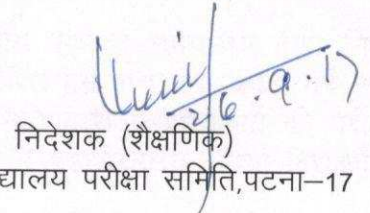 26.9.17
निदेशक (शैक्षणिक)
द्यालय परीक्षा समिति,पटना–17